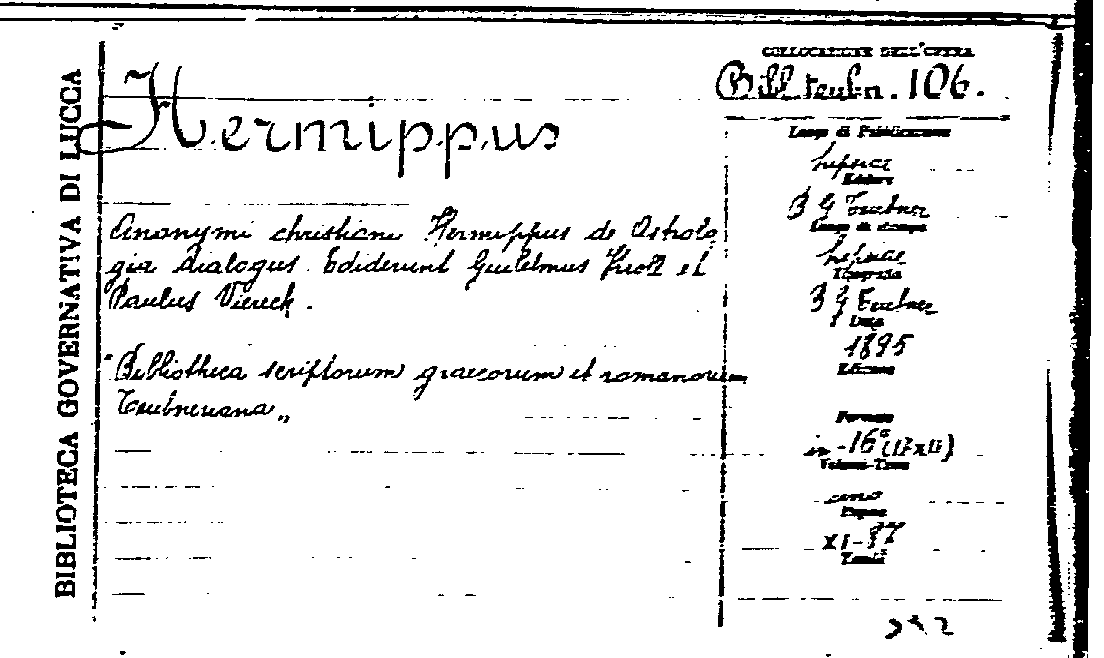 BIBLIOTECA GOVERNATIVA DI LUCCA
Hermippus
Anonymi christiani Hermippus de Astrolo
gia dialogus. Ediderunt Guilelmus Kroll et
Paulus Viereck.
"Bibliotheca scriptorum graecorum et romanorum
Teubneriana"
COLLOCAZIONE DELL'OPERA
Bibl. teubn. 106.
Luogo di Pubblicazione
Lipsiae
Editore
B G Teubner
Luogo di stampa
Lipsiae
Tipografia
B G Teubner
Data
1895
Edizione
Formato
in-16°
Volumi-Tomi
uno
Pagine
XI-87